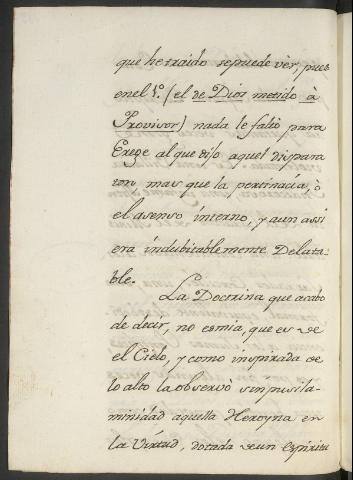 que he traido se puede vèr, pues
en el 1.º (el de Dios metido à
Provisor) nada le faltò para
Erege al que dijo aquel dispara
ton mas que la pertinacia, ò
el asenso interno, y aun assi
era indubitablemente Delata-
ble.
La Doctrina que acabo
de decir, no es mia, que es de
el Cielo, y como inspirada de
lo alto la observò sin pusila-
minidad aquella Heroyna en
la Virtud, dotada de un Espiritu